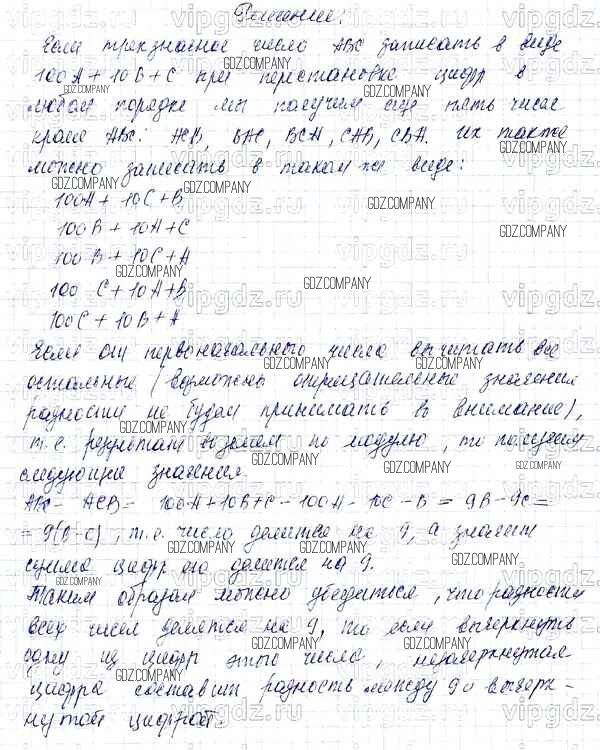 Решение:
Если трехзначное число ABC записать в виде
100A + 10B + C при перестановке цифр в
любом порядке мы получим еще пять чисел
кроме ABC: ACB, BAC, BCA, CAB, CBA. Их также
можно записать в таком же виде:
100A + 10C + B
100B + 10A + C
100B + 10C + A
100C + 10A + B
100C + 10B + A
Если от первоначального числа вычитать все
остальные (возможные отрицательные значения
разности не будем принимать во внимание),
т.е. результат возьмем по модулю, то получим
следующие значения
ABC - ACB = 100A + 10B + C - 100A - 10C - B = 9B - 9C =
= 9(B - C), т.е. число делится на 9, а значит
сумма цифр его делится на 9.
Таким образом можно убедиться, что разности
всех чисел делятся на 9, то если вычеркнуть
одну из цифр этого числа, незачеркнутая
цифра составит разность между 9 и вычерк-
нутой цифрой.
GDZ.COMPANY
vipgdz.ru